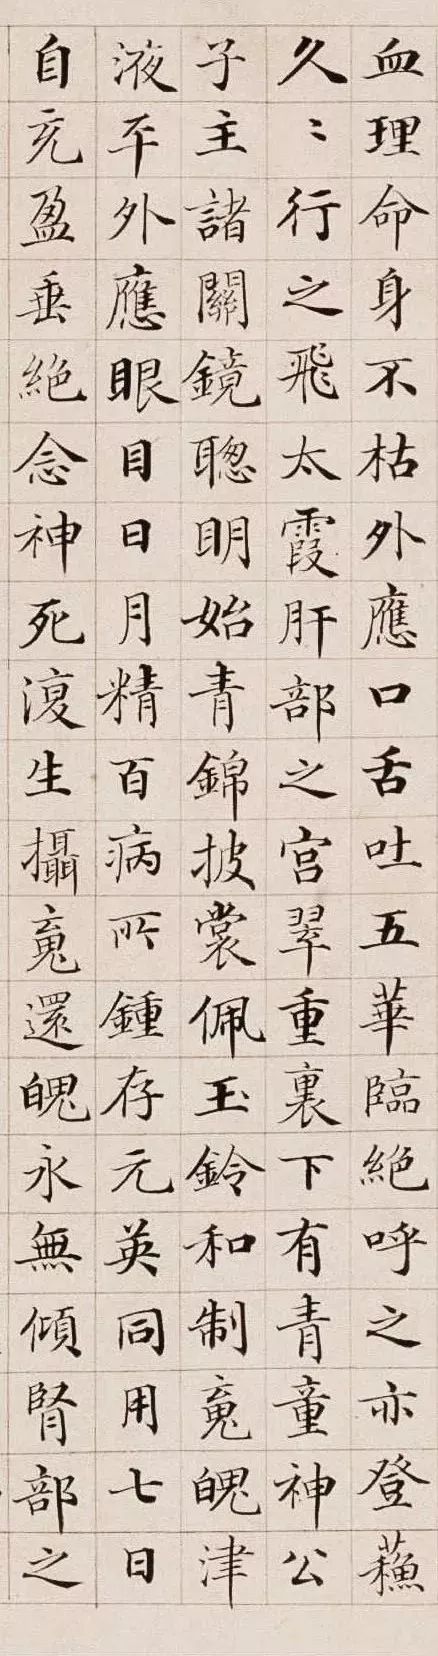 血理命身不枯外應口舌吐五華臨絕呼之亦登蘓
久〻行之飛太霞肝部之宮翠重裏下有青童神公
子主諸關鏡聰明始青錦披裳佩玉鈴和制䰟魄津
液平外應眼目日月精百病所鍾存元英同用七日
自充盈垂絕念神死復生攝䰟還魄永無傾腎部之